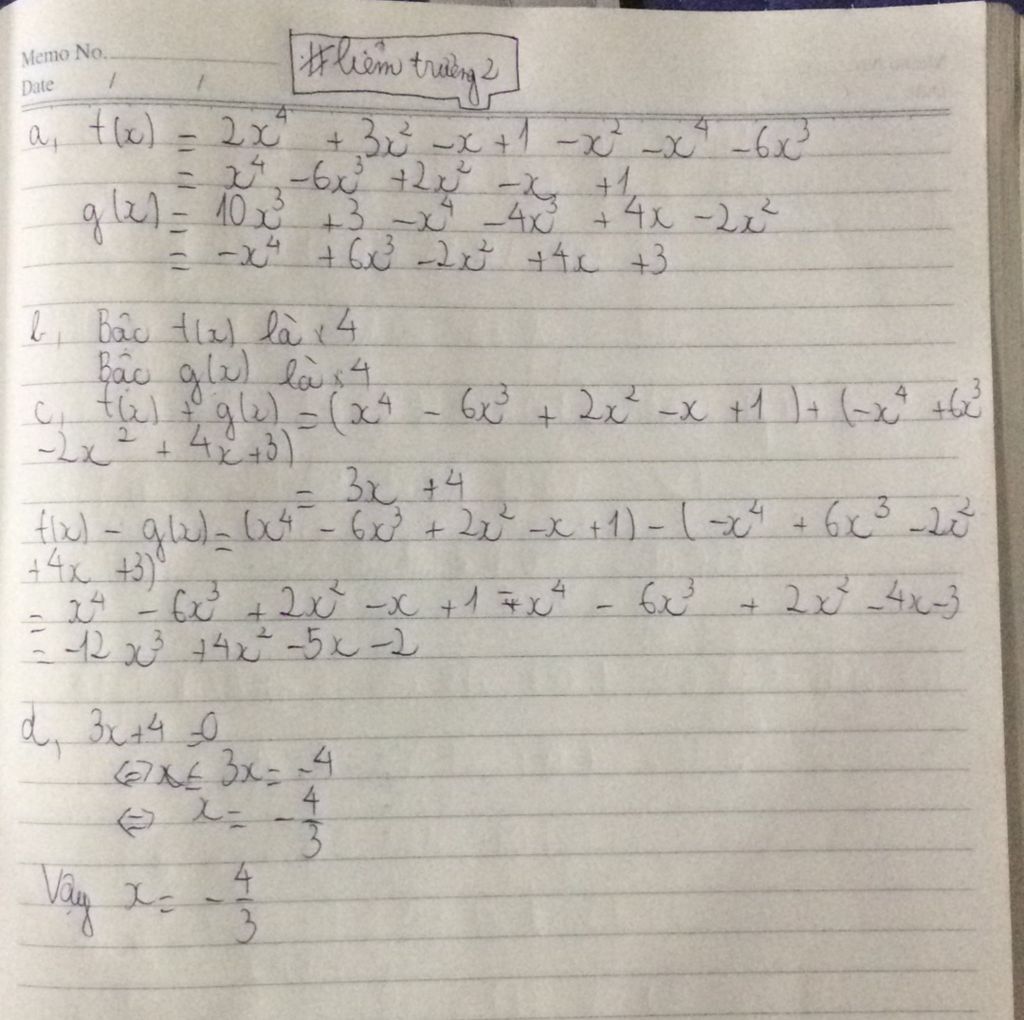 Memo No.
Date / /
#liêm trường 2
a, f(x) = 2x⁴ + 3x² - x + 1 - x² - x⁴ - 6x³
= x⁴ - 6x³ + 2x² - x + 1
g(x) = 10x³ + 3 - x⁴ - 4x³ + 4x - 2x²
= -x⁴ + 6x³ - 2x² + 4x + 3
b, Bậc f(x) là 4
Bậc g(x) là 4
c, f(x) + g(x) = (x⁴ - 6x³ + 2x² - x + 1) + (-x⁴ + 6x³
-2x² + 4x + 3)
= 3x + 4
f(x) - g(x) = (x⁴ - 6x³ + 2x² - x + 1) - (-x⁴ + 6x³ - 2x²
+ 4x + 3)
= x⁴ - 6x³ + 2x² - x + 1 + x⁴ - 6x³ + 2x² - 4x - 3
= -12x³ + 4x² - 5x - 2
d, 3x + 4 = 0
⇔ 3x = -4
⇔ x = -4/3
Vậy x = -4/3